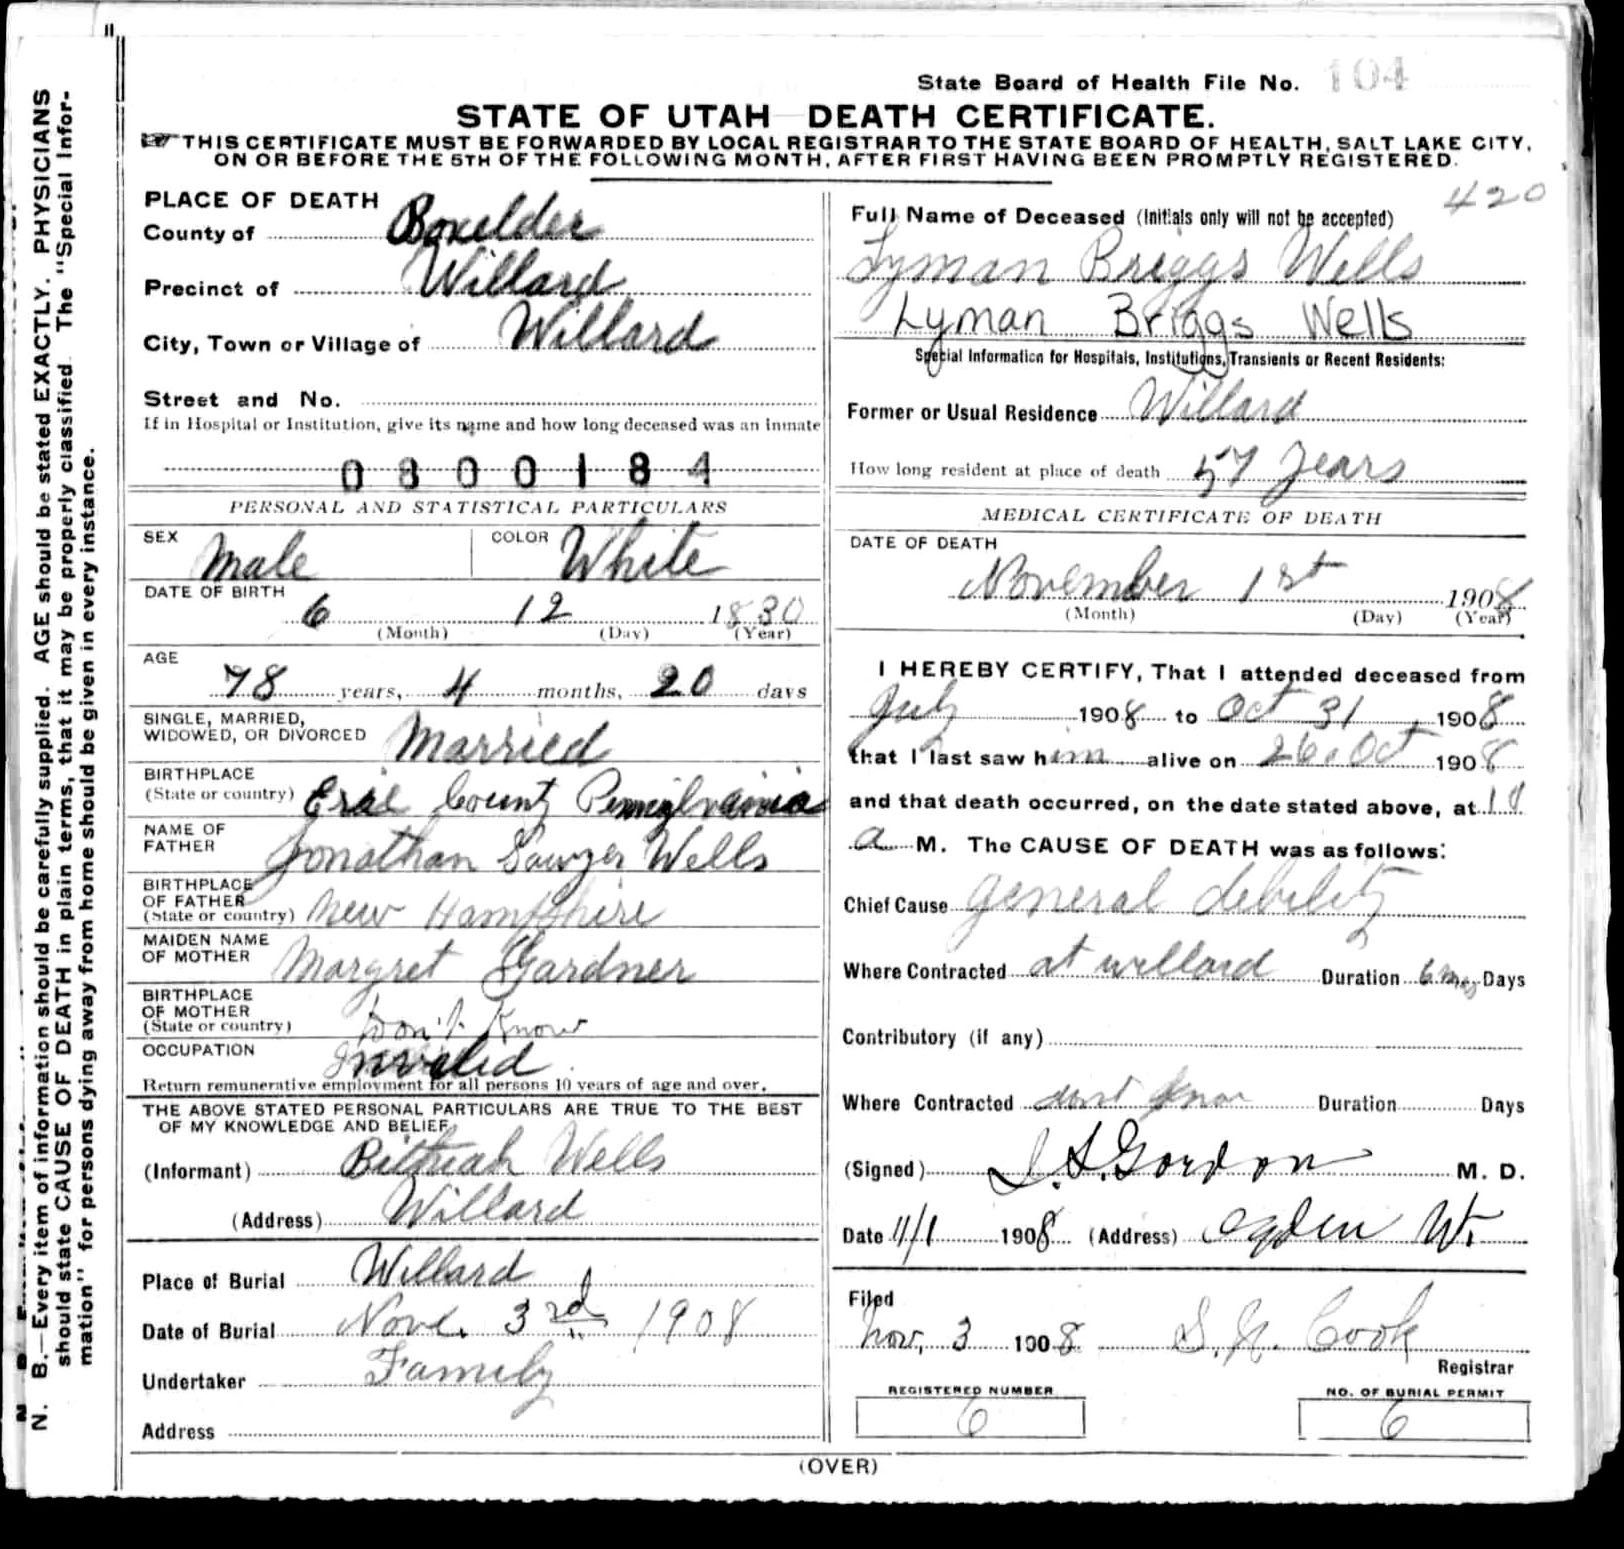 State Board of Health File No. 104
STATE OF UTAH DEATH CERTIFICATE.
THIS CERTIFICATE MUST BE FORWARDED BY LOCAL REGISTRAR TO THE STATE BOARD OF HEALTH, SALT LAKE CITY,
ON OR BEFORE THE 5TH OF THE FOLLOWING MONTH, AFTER FIRST HAVING BEEN PROMPTLY REGISTERED.
N. B.—Every item of information should be carefully supplied. AGE should be stated EXACTLY. PHYSICIANS
should state CAUSE OF DEATH in plain terms, that it may be properly classified. The "Special Infor-
mation" for persons dying away from home should be given in every instance.
PLACE OF DEATH
County of Boxelder
Precinct of Willard
City, Town or Village of Willard
Street and No.
If in Hospital or Institution, give its name and how long deceased was an inmate
0800184
PERSONAL AND STATISTICAL PARTICULARS
SEX Male COLOR White
DATE OF BIRTH
6 12 1830
(Month) (Day) (Year)
AGE
78 years, 4 months, 20 days
SINGLE, MARRIED,
WIDOWED, OR DIVORCED Married
BIRTHPLACE
(State or country) Erie County Pennsylvania
NAME OF
FATHER Jonathan Sawyer Wells
BIRTHPLACE
OF FATHER
(State or country) New Hampshire
MAIDEN NAME
OF MOTHER Margret Gardner
BIRTHPLACE
OF MOTHER
(State or country) Don't Know
OCCUPATION Invalid
Return remunerative employment for all persons 10 years of age and over.
THE ABOVE STATED PERSONAL PARTICULARS ARE TRUE TO THE BEST
OF MY KNOWLEDGE AND BELIEF
(Informant) Bithiah Wells
(Address) Willard
Place of Burial Willard
Date of Burial Nov. 3rd 1908
Undertaker Family
Address
420
Full Name of Deceased (Initials only will not be accepted)
Lyman Briggs Wells
Lyman Briggs Wells
Special Information for Hospitals, Institutions, Transients or Recent Residents:
Former or Usual Residence Willard
How long resident at place of death 57 years
MEDICAL CERTIFICATE OF DEATH
DATE OF DEATH
November 1st 1908
(Month) (Day) (Year)
I HEREBY CERTIFY, That I attended deceased from
July 1908 to Oct 31, 1908
that I last saw him alive on 26. Oct 1908
and that death occurred, on the date stated above, at
a M. The CAUSE OF DEATH was as follows:
Chief Cause general debility
Where Contracted at willard Duration 6 mos Days
Contributory (if any)
Where Contracted dont know Duration Days
(Signed) Gordon M. D.
Date 11/1 1908 (Address) Ogden Ut.
Filed
Nov, 3 1908 S. N. Cook
Registrar
REGISTERED NUMBER
6
NO. OF BURIAL PERMIT
6
(OVER)